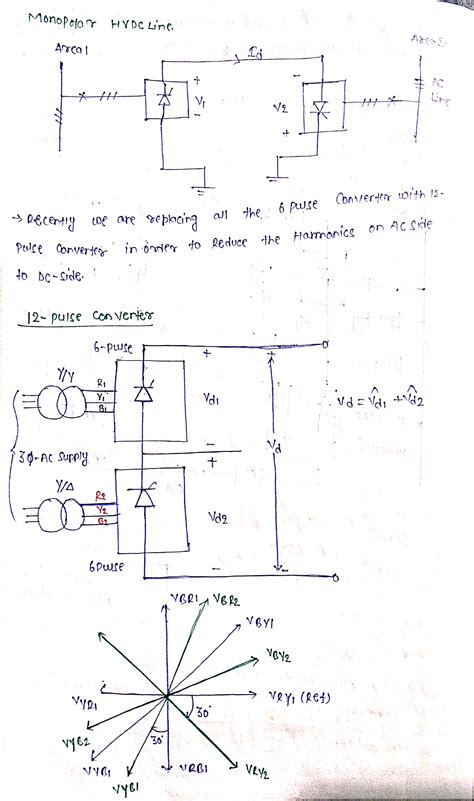 Monopolar HVDC Line.
Area 1
Id
Area 2
+
-
V1
V2
-
+
AC
Line
→ Recently we are replacing all the 6 pulse Converter with 12-
pulse converter in order to Reduce the Harmonics on AC side
to DC-side.
12- pulse Converter
6-pulse
+
+
Y/Y
R1
Y1
B1
Vd1
Vd = V̂d1 + V̂d2
-
Vd
3Φ-AC supply
+
Y/Δ
R2
Y2
B2
Vd2
6pulse
-
-
VBR1
VBR2
VBY1
VBY2
VYR1
VRY1 (Ref)
30°
VYB2
30°
VYB1
VRB1
VRY2
VYB1